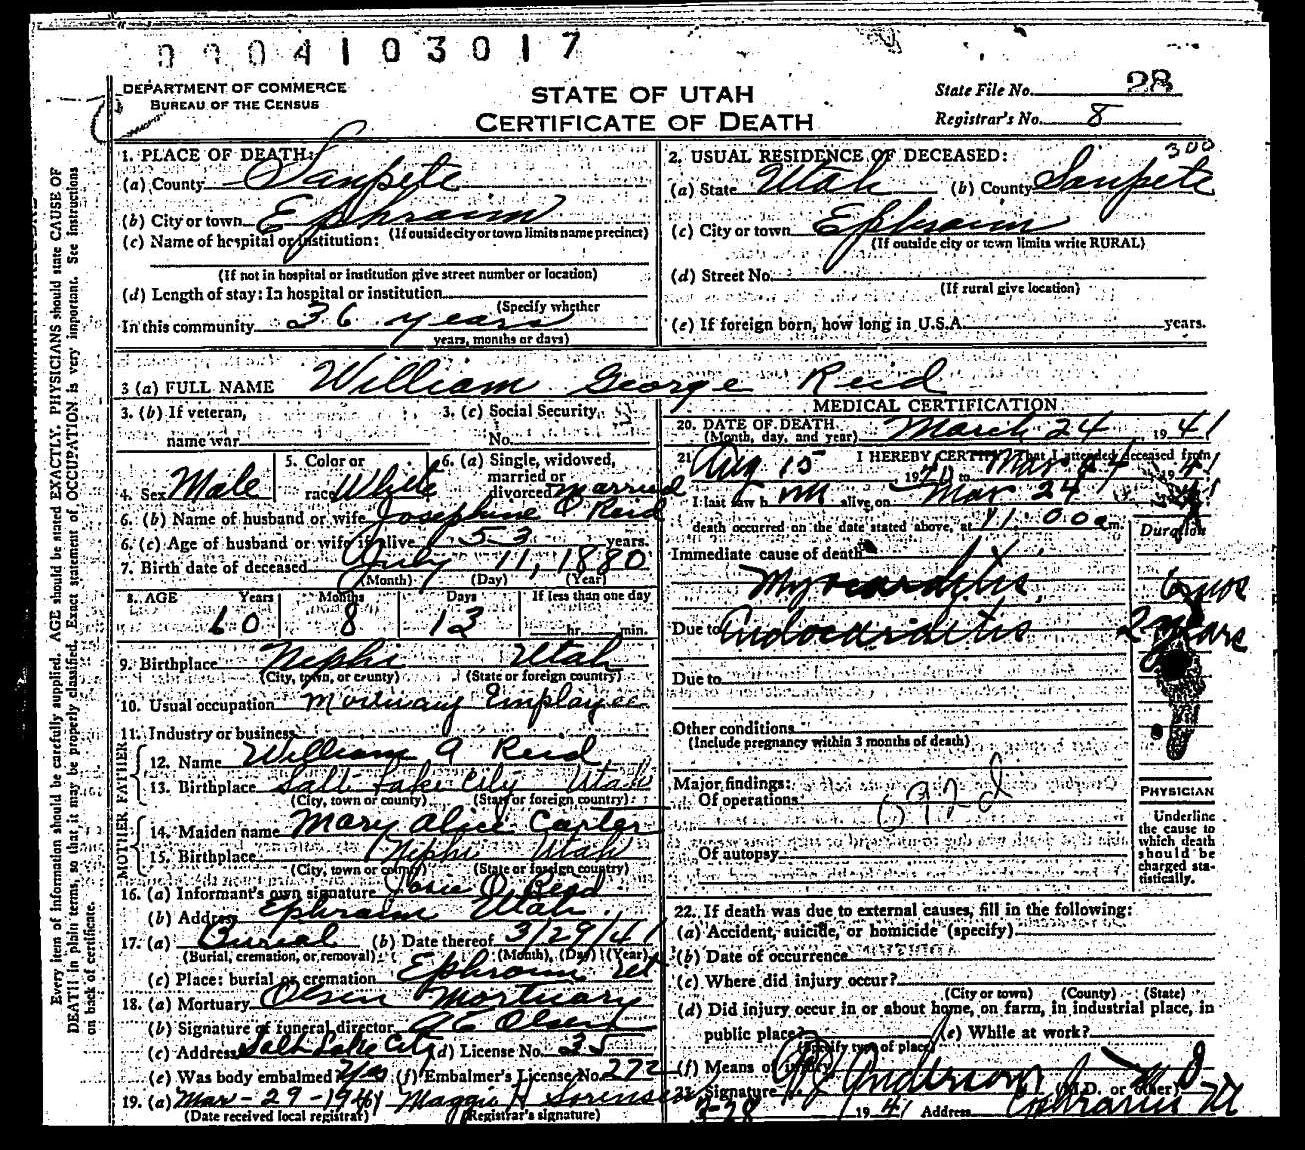 0004103017
DEPARTMENT OF COMMERCE
BUREAU OF THE CENSUS
STATE OF UTAH
CERTIFICATE OF DEATH
State File No. 28
Registrar's No. 8
300
Every item of information should be carefully supplied. AGE should be stated EXACTLY. PHYSICIANS should state CAUSE OF
DEATH in plain terms, so that it may be properly classified. Exact statement of OCCUPATION is very important. See instructions
on back of certificate.
1. PLACE OF DEATH:
(a) County Sanpete
(b) City or town Ephraim
(If outside city or town limits name precinct)
(c) Name of hospital or institution:
(If not in hospital or institution give street number or location)
(d) Length of stay: In hospital or institution
(Specify whether
In this community 36 years
years, months or days)
2. USUAL RESIDENCE OF DECEASED:
(a) State Utah (b) County Sanpete
(c) City or town Ephraim
(If outside city or town limits write RURAL)
(d) Street No.
(If rural give location)
(e) If foreign born, how long in U.S.A. years.
3 (a) FULL NAME William George Reid
3. (b) If veteran,
name war
3. (c) Social Security
No.
4. Sex Male
5. Color or
race White
6. (a) Single, widowed,
married or
divorced married
6. (b) Name of husband or wife Josephine O Reid
6. (c) Age of husband or wife if alive 53 years.
7. Birth date of deceased July 11, 1880
(Month) (Day) (Year)
8. AGE Years Months Days If less than one day
60 8 13 hr. min.
9. Birthplace Nephi Utah
(City, town, or county) (State or foreign country)
10. Usual occupation Employee
11. Industry or business
FATHER
12. Name William A Reid
13. Birthplace Salt Lake City Utah
(City, town or county) (State or foreign country)
MOTHER
14. Maiden name Mary Alice Carter
15. Birthplace Nephi Utah
(City, town or county) (State or foreign country)
16. (a) Informant's own signature Josie O. Reid
(b) Address Ephraim Utah.
17. (a) Burial (b) Date thereof 3/29/41
(Burial, cremation, or removal) (Month), (Day) (Year)
(c) Place: burial or cremation Ephraim Ut
18. (a) Mortuary Olsen Mortuary
(b) Signature of funeral director A E Olsen
(c) Address Salt Lake City (d) License No. 35
(e) Was body embalmed? Yes (f) Embalmer's License No. 272
19. (a) Mar-29-1941 Maggie H Sorensen
(Date received local registrar) (Registrar's signature)
MEDICAL CERTIFICATION
20. DATE OF DEATH March 24 1941
(Month, day, and year)
21. I HEREBY CERTIFY That I attended deceased from
Aug 15 1940 to Mar 24 1941
I last saw him alive on Mar 24 41
death occurred on the date stated above, at 11:00 a m.
Duration
Immediate cause of death
Myocarditis, 6 mos
Due to Endocarditis 2 years
Due to
Other conditions
(Include pregnancy within 3 months of death)
Major findings:
Of operations
Of autopsy
PHYSICIAN
Underline
the cause to
which death
should be
charged sta-
tistically.
22. If death was due to external causes, fill in the following:
(a) Accident, suicide, or homicide (specify)
(b) Date of occurrence
(c) Where did injury occur?
(City or town) (County) (State)
(d) Did injury occur in or about home, on farm, in industrial place, in
public place? (e) While at work?
(Specify type of place)
(f) Means of injury
23. Signature Anderson M D (M.D. or other)
3-28 1941 Address Ephraim Ut